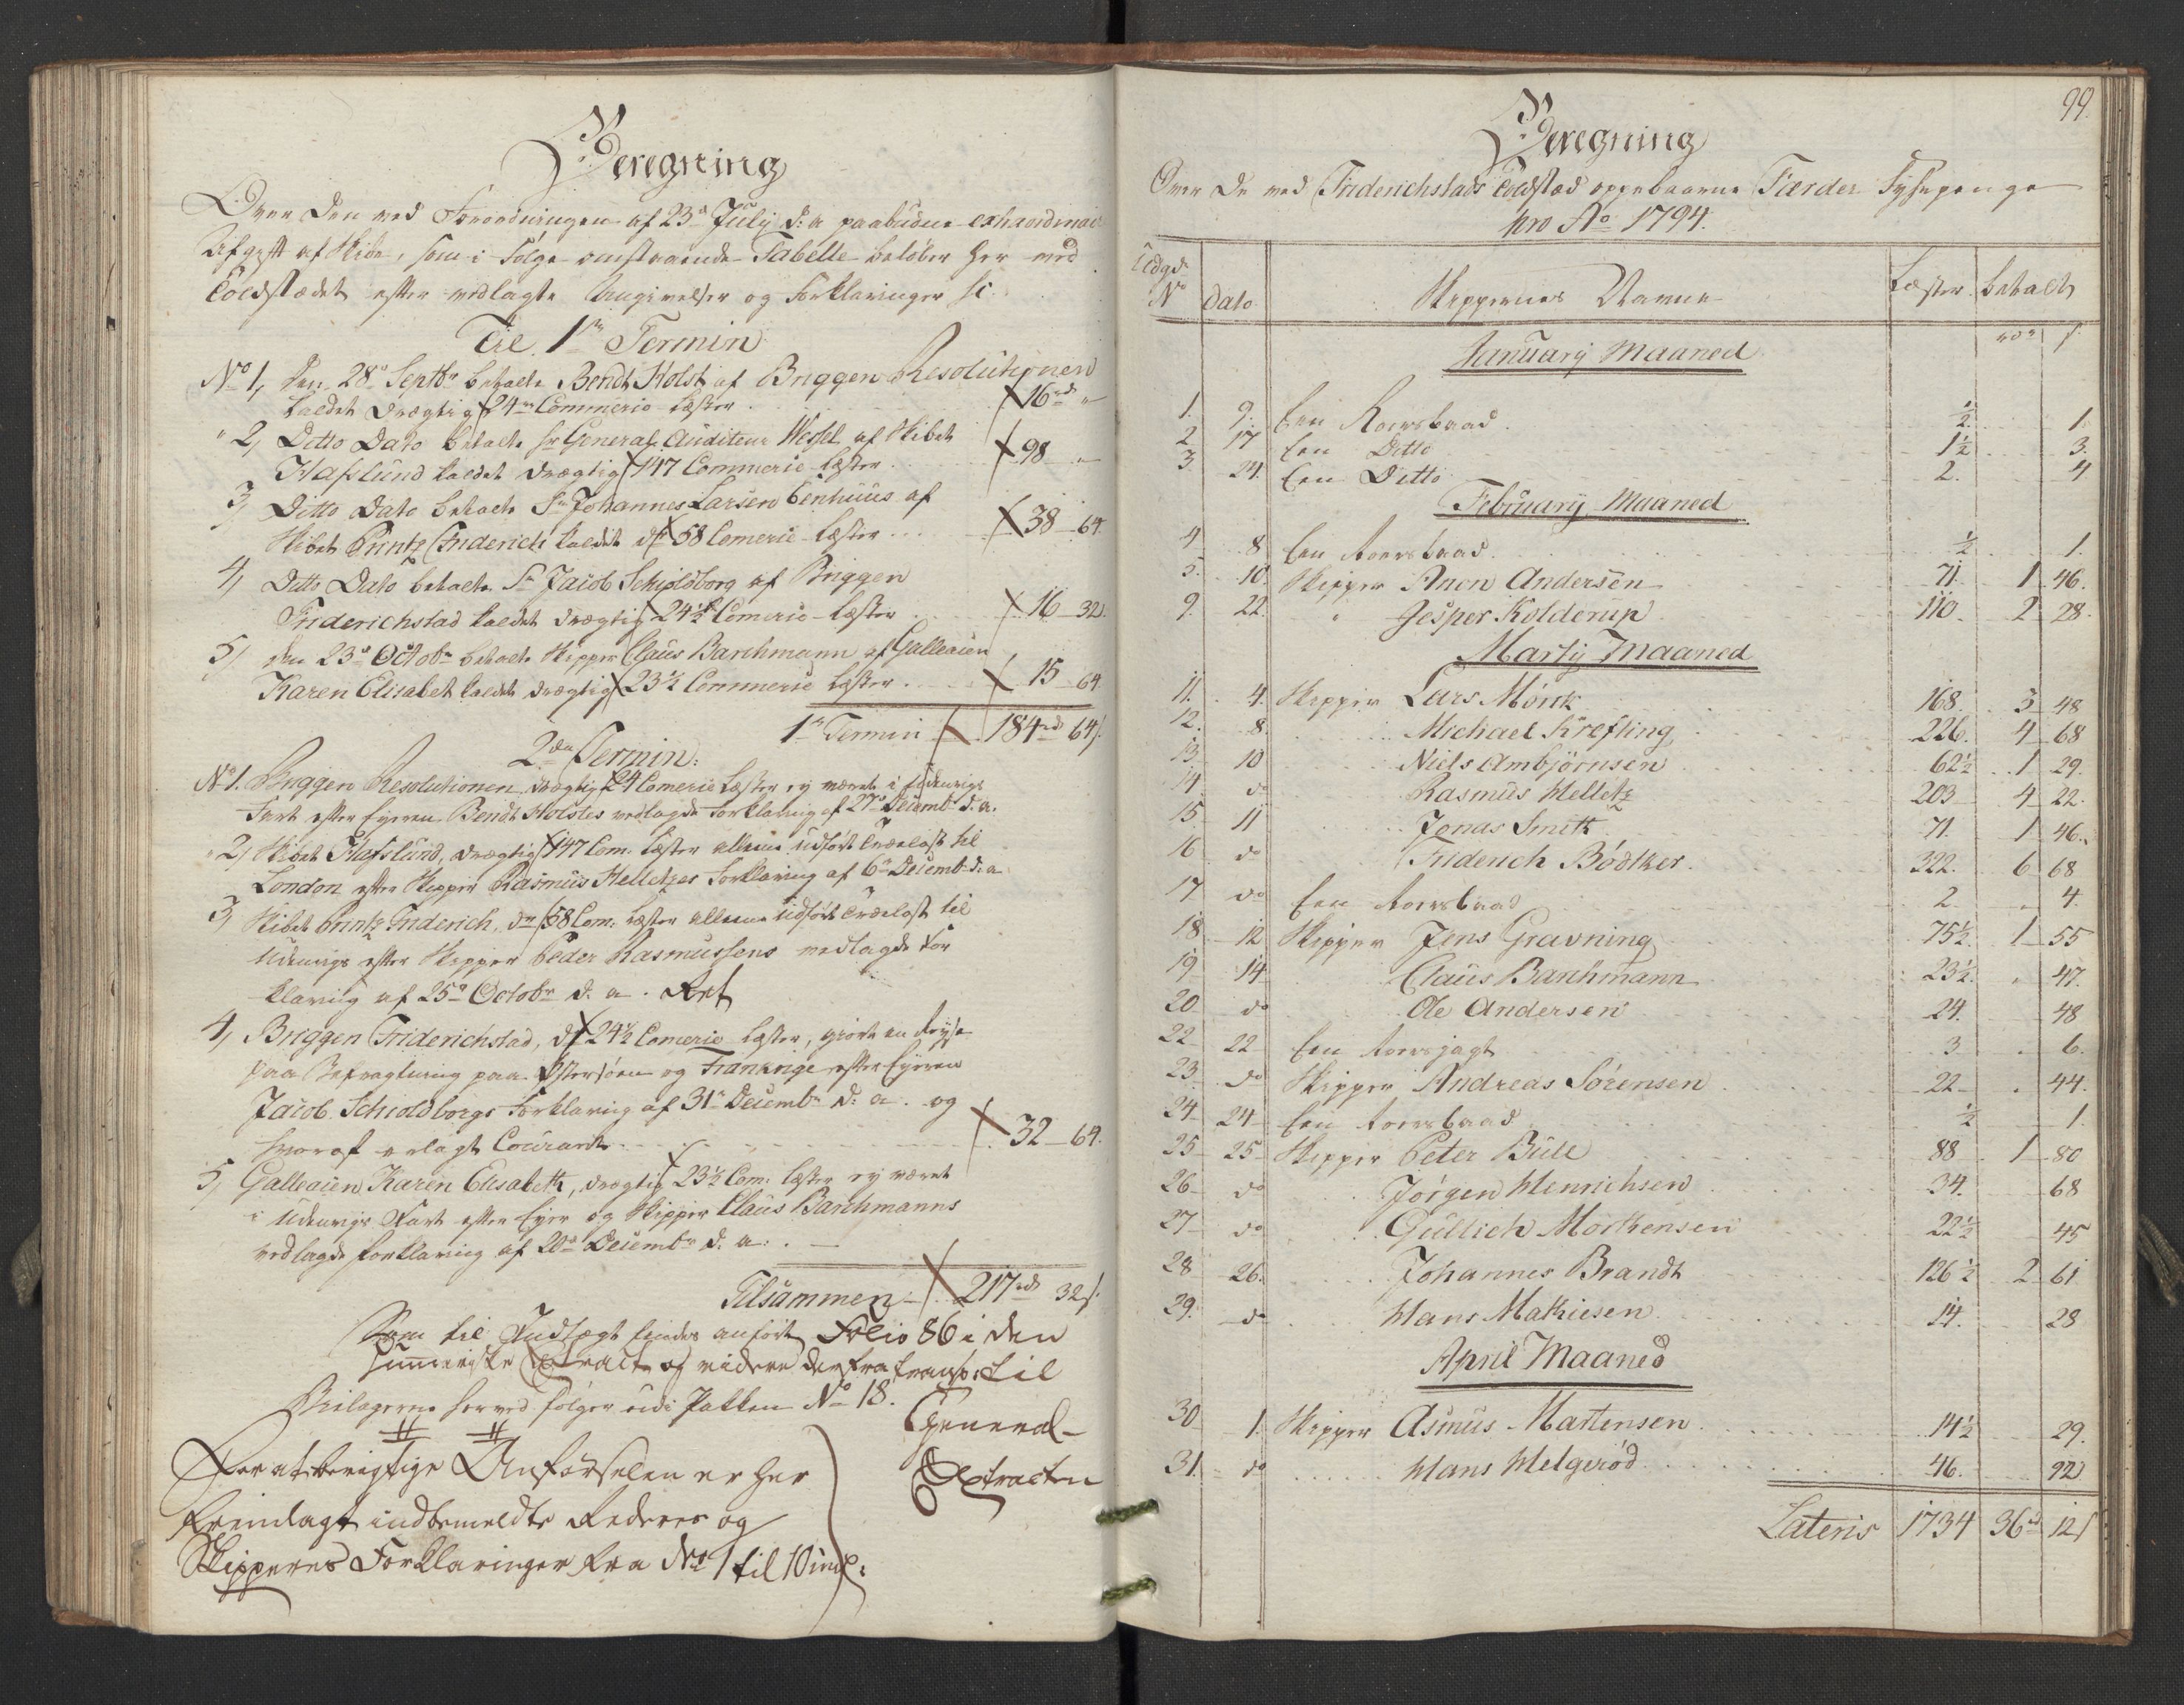 Beregning
Over den ved Forordningen af 23de July d: a paabudne extraordinair
Afgift af Skibe, som i Følge omstaaende Tabelle beløber her ved
Toldstædet efter vedlagte Angivelser og Forklaringer sc:
Til 1ste Termin
No 1, den 28de Septbr betalte Bendt Holst af Briggen Resolutionen
kaldet drægtig 24 Commerce Læster . 16rd "
" 2, Ditto Dato betalte Hr General Auditeur Wessel af Skibet
Hafslund kaldet drægtig 147 Commerce Læster . 98 "
3, Ditto Dato betalte Sr Johannes Larsen Eenhuus af
Skibet Printz Friderich kaldet dr 58 Comerce Læster ... 38 64.
4, Ditto Dato betalte Sr Jacob Schioldborg af Briggen
Friderichstad kaldet drægtig 24½ Comerce Læster 16 32.
5, den 23de Octobr betalte Skipper Claus Barchmann af Galleaien
Karen Elisabet kaldet drægtig 23½ Commerce Læster . 15 64
1ste Termin 184rd 64s.
2den Termin:
No 1. Briggen Resolutionen drægtig 24 Comerce Læster ey været i udenrigs
Fart efter Eyeren Bendt Holstes vedlagde Forklaring af 27de Decembr d: a.
" 2, Skibet Hafslund, drægtig 147 Com. Læster alleene udført Trælast til
London efter Skipper Rasmus Helletzes Forklaring af 6te Decembr d: a
3, Skibet Printz Friderich, dr 58 Com: Læster alleene udført Trælast til
Udenrigs efter Skipper Peder Rasmussens vedlagde For
klaring af 25de Octobr d: a.
4, Briggen Friderichstad, dr 24½ Comerce Læster, giort en Reyse
paa Befragtning paa Østersøen og Frankrige efter Eyeren
Jacob Schioldborgs Forklaring af 31te Decembr d: a. og
hvoraf erlagt Courant 32 64.
5, Galleaien Karen Elisabeth, drægtig 23½ Com: Læster ey været
i Udenrigs Fart efter Eyer og Skipper Claus Barchmanns
vedlagde forklaring af 20de Decembr d: a: .
Tilsammen 217rd 32s.
Som til Indtægt findes anført Folio 86 i den
Summariske Extract og videre derfra transp: til
General-
Bilagerne herved følger udi Pakken No 18.
Extracten
For at berigtige Anførselen er her
fremlagt indbemeldte Rederes og
Skipperes Forklaringer fra No 1 til 10 incl:
99.
Beregning
Over de ved Friderichstads Toldsted oppebaarne Færder Fyrpenge
pro Ao 1794.
Udgd. No Dato Skippernes Navne Læster betalt
rdr s
January Maaned
1. 9. Een Roersbaad ½ 1.
2 17 Een Ditto 1½ 3.
3. 24. Een Ditto 2. 4
February Maaned
4 8 Een Roersbaad ½ 1.
5. 10. Skipper Anon Andersen 71. 1 46.
9. 22. " Jesper Kolderup 110. 2 28.
Martij Maaned
11. 4. Skipper Lars Mörck 168. 3 48
12. 8. Michael Krefting 226. 4 68
13. 10 Niels Ambjörnsen 62½ 1 29.
14. do Rasmus Helletz 203 4 22.
15 11 Jonas Smith 71. 1 46.
16 do Friderich Bödtker 322. 6 68
17 do Een Roersbaad 2 4.
18 12 Skipper Jens Gravning 75½ 1 55
19 14 Claus Barchmann 23½ " 47.
20 do Ole Andersen 24. 48
22 22 Een Roersjagt 3 6.
23. do Skipper Andreas Sörensen 22 44.
24 24 Een Roersbaad ½ 1.
25 25 Skipper Peter Bull 88 1 80
26 do Jörgen Henrichsen 34. 68
27 do Gullich Morthensen 22½ 45
28 26. Johannes Brandt 126½ 2 61
29. do Hans Mathiesen 14. 28
April Maaned
30 1. Skipper Asmus Martensen 14½ 29.
31. do Hans Helgeröd 46. 92
Lateris 1734 36rd 12s